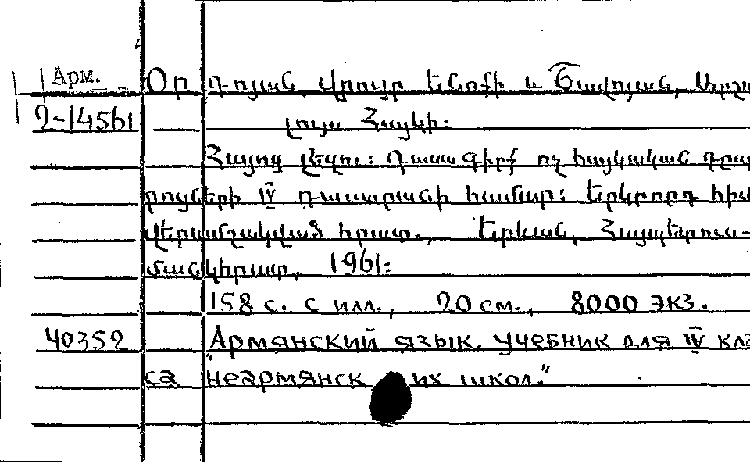 Арм. Օր դոյան, Վրույր Ենոքի և Ծավոյան, Արշա
2-14561 լույս Հայկի։
Հայոց լեզու։ Դասագիրք ոչ հայկական դպ
րոցների IV դասարանի համար։ Երկրորդ հիմ
վերամշակված հրատ., Երևան, Հայպետուս-
մանկհրատ, 1961։
158 с. с илл., 20 см., 8000 экз.
40352 Армянский язык. Учебник для IV кла
са "неармянск их школ."